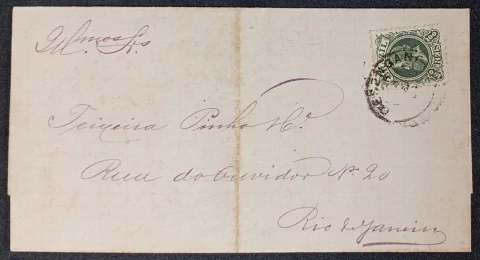 Illmos Srs
Teixeira Pinho & Ca.
Rua do Ouvidor No. 20
Rio de Janeiro